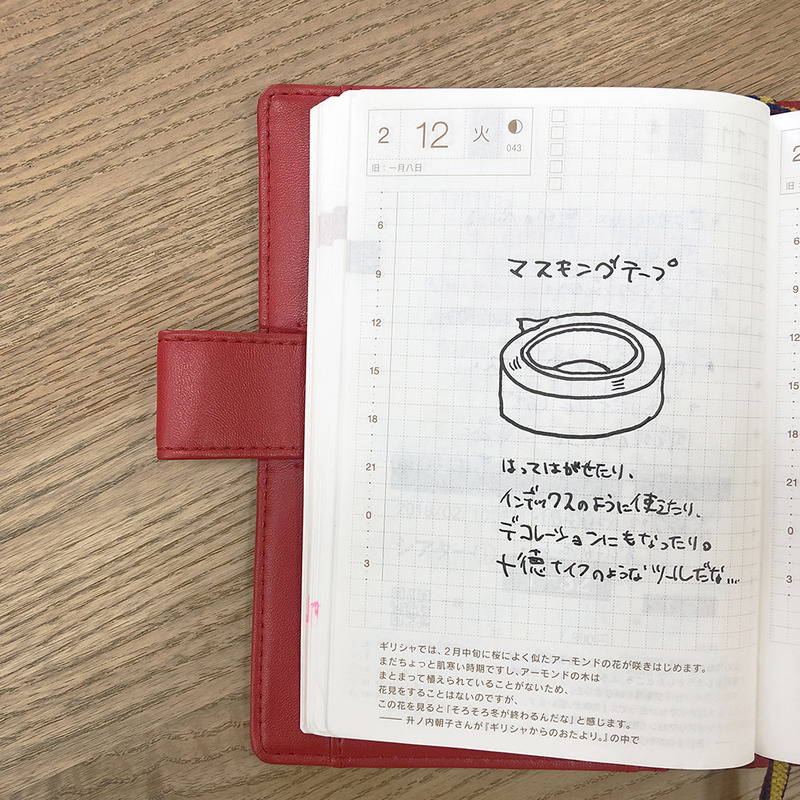 2 12 火
043
旧：一月八日
6
9
12
15
18
21
0
3
マスキングテープ
はってはがせたり、
インデックスのように使えたり、
デコレーションにもなったり。
十徳ナイフのようなツールだな…
ギリシャでは、2月中旬に桜によく似たアーモンドの花が咲きはじめます。
まだちょっと肌寒い時期ですし、アーモンドの木は
まとまって植えられていることがないため、
花見をすることはないのですが、
この花を見ると「そろそろ冬が終わるんだな」と感じます。
—— 升ノ内朝子さんが『ギリシャからのおたより。』の中で
2
旧：
6
9
12
15
18
21
0
3